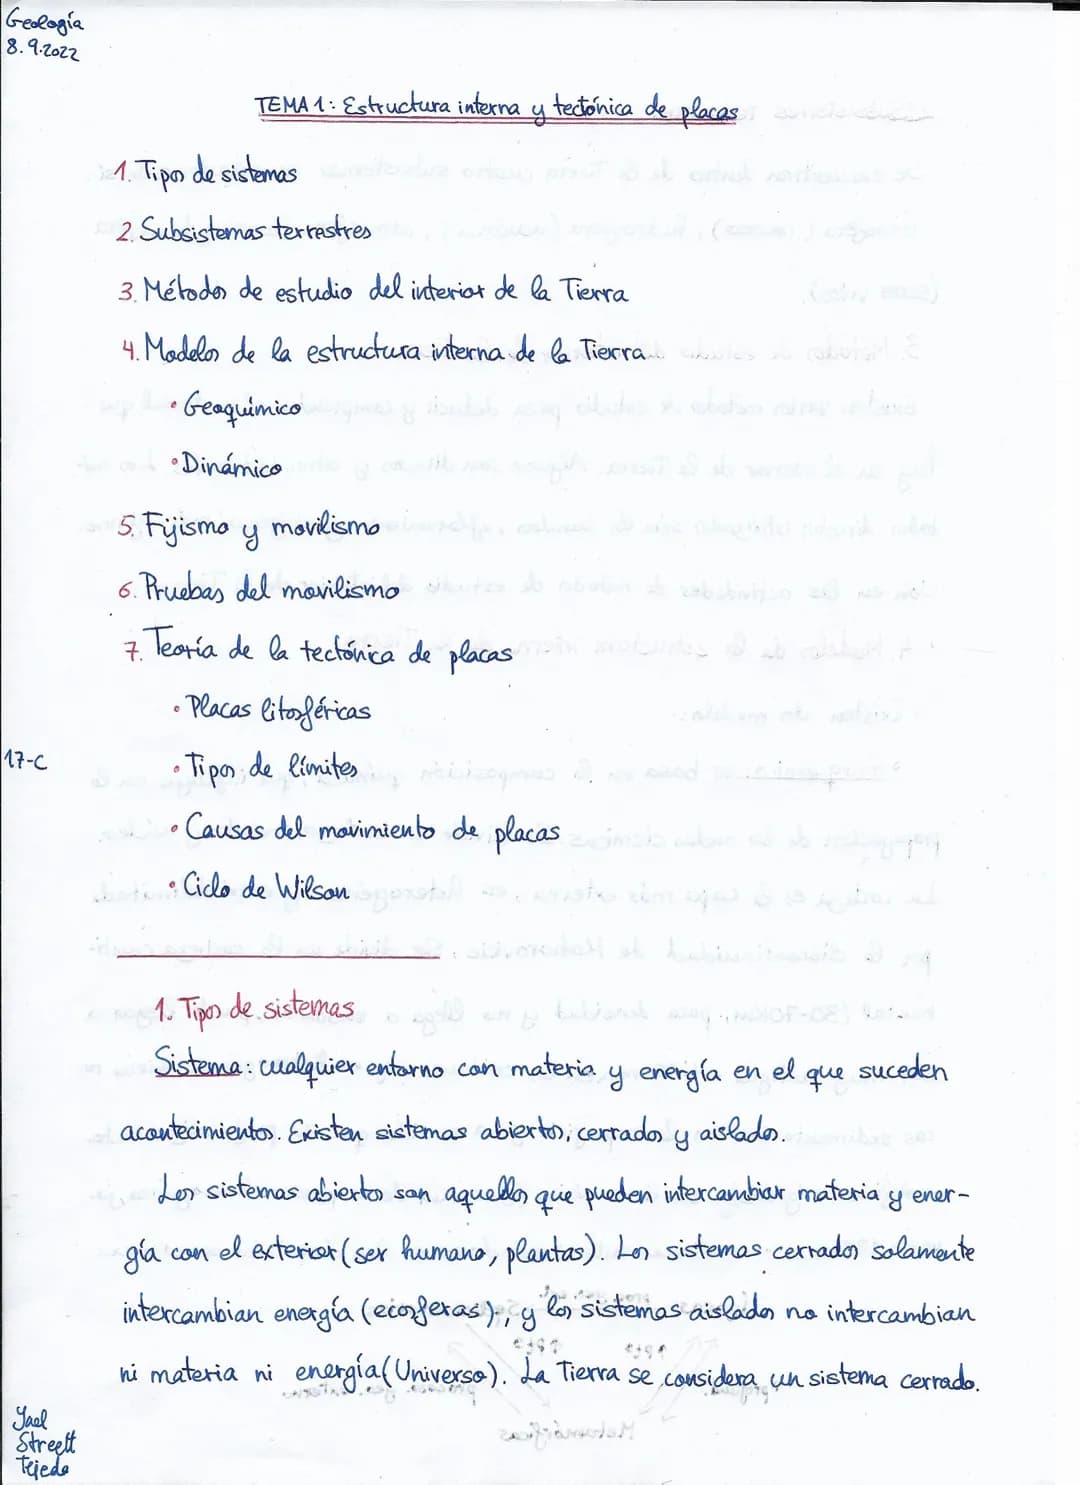 Geología
8.9.2022
TEMA 1: Estructura interna y tectónica de placas
1. Tipos de sistemas
2. Subsistemas terrestres
3. Métodos de estudio del interior de la Tierra
4. Modelos de la estructura interna de la Tierra
• Geoquímico
• Dinámico
5. Fijismo y movilismo
6. Pruebas del movilismo
7. Teoría de la tectónica de placas
• Placas litosféricas
17-C
• Tipos de límites
• Causas del movimiento de placas
• Ciclo de Wilson
1. Tipos de sistemas
Sistema: cualquier entorno con materia y energía en el que suceden
acontecimientos. Existen sistemas abiertos, cerrados y aislados.
Los sistemas abiertos son aquellos que pueden intercambiar materia y ener-
gía con el exterior (ser humano, plantas). Los sistemas cerrados solamente
intercambian energía (ecosferas), y los sistemas aislados no intercambian
ni materia ni energía (Universo). La Tierra se considera un sistema cerrado.
Yael
Streett
Tejedo